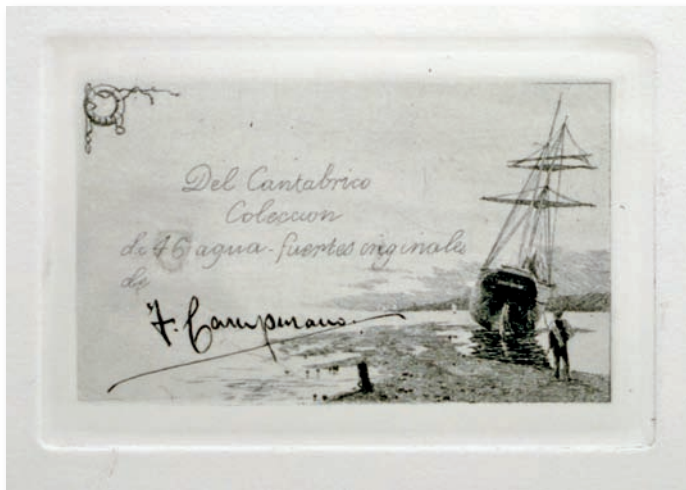 Del Cantabrico
Coleccion
de 46 agua-fuertes originales
de
T. Campuzano